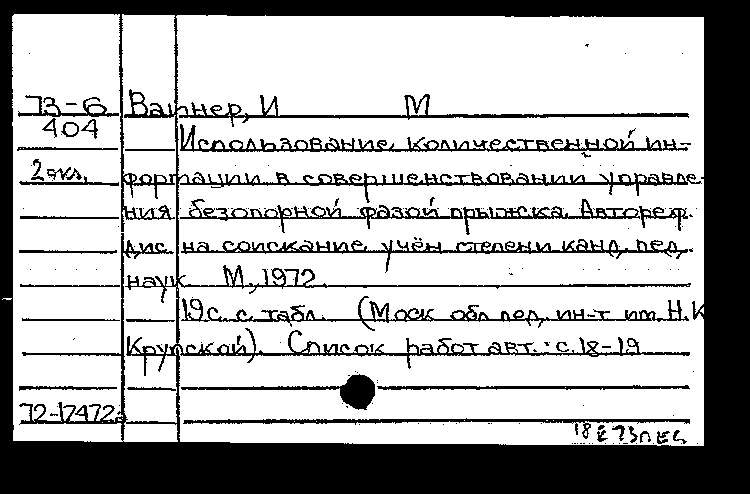 73-6 Вайнер, И М
404
Использование количественной ин-
2 экз. формации в совершенствовании управле-
ния безопорной фазой прыжка. Автореф.
дис. на соискание учён степени канд. пед.
наук М., 1972.
19с. с табл. (Моск обл пед. ин-т им. Н.К
Крупской). Список работ авт.: с. 18-19
72-17472а